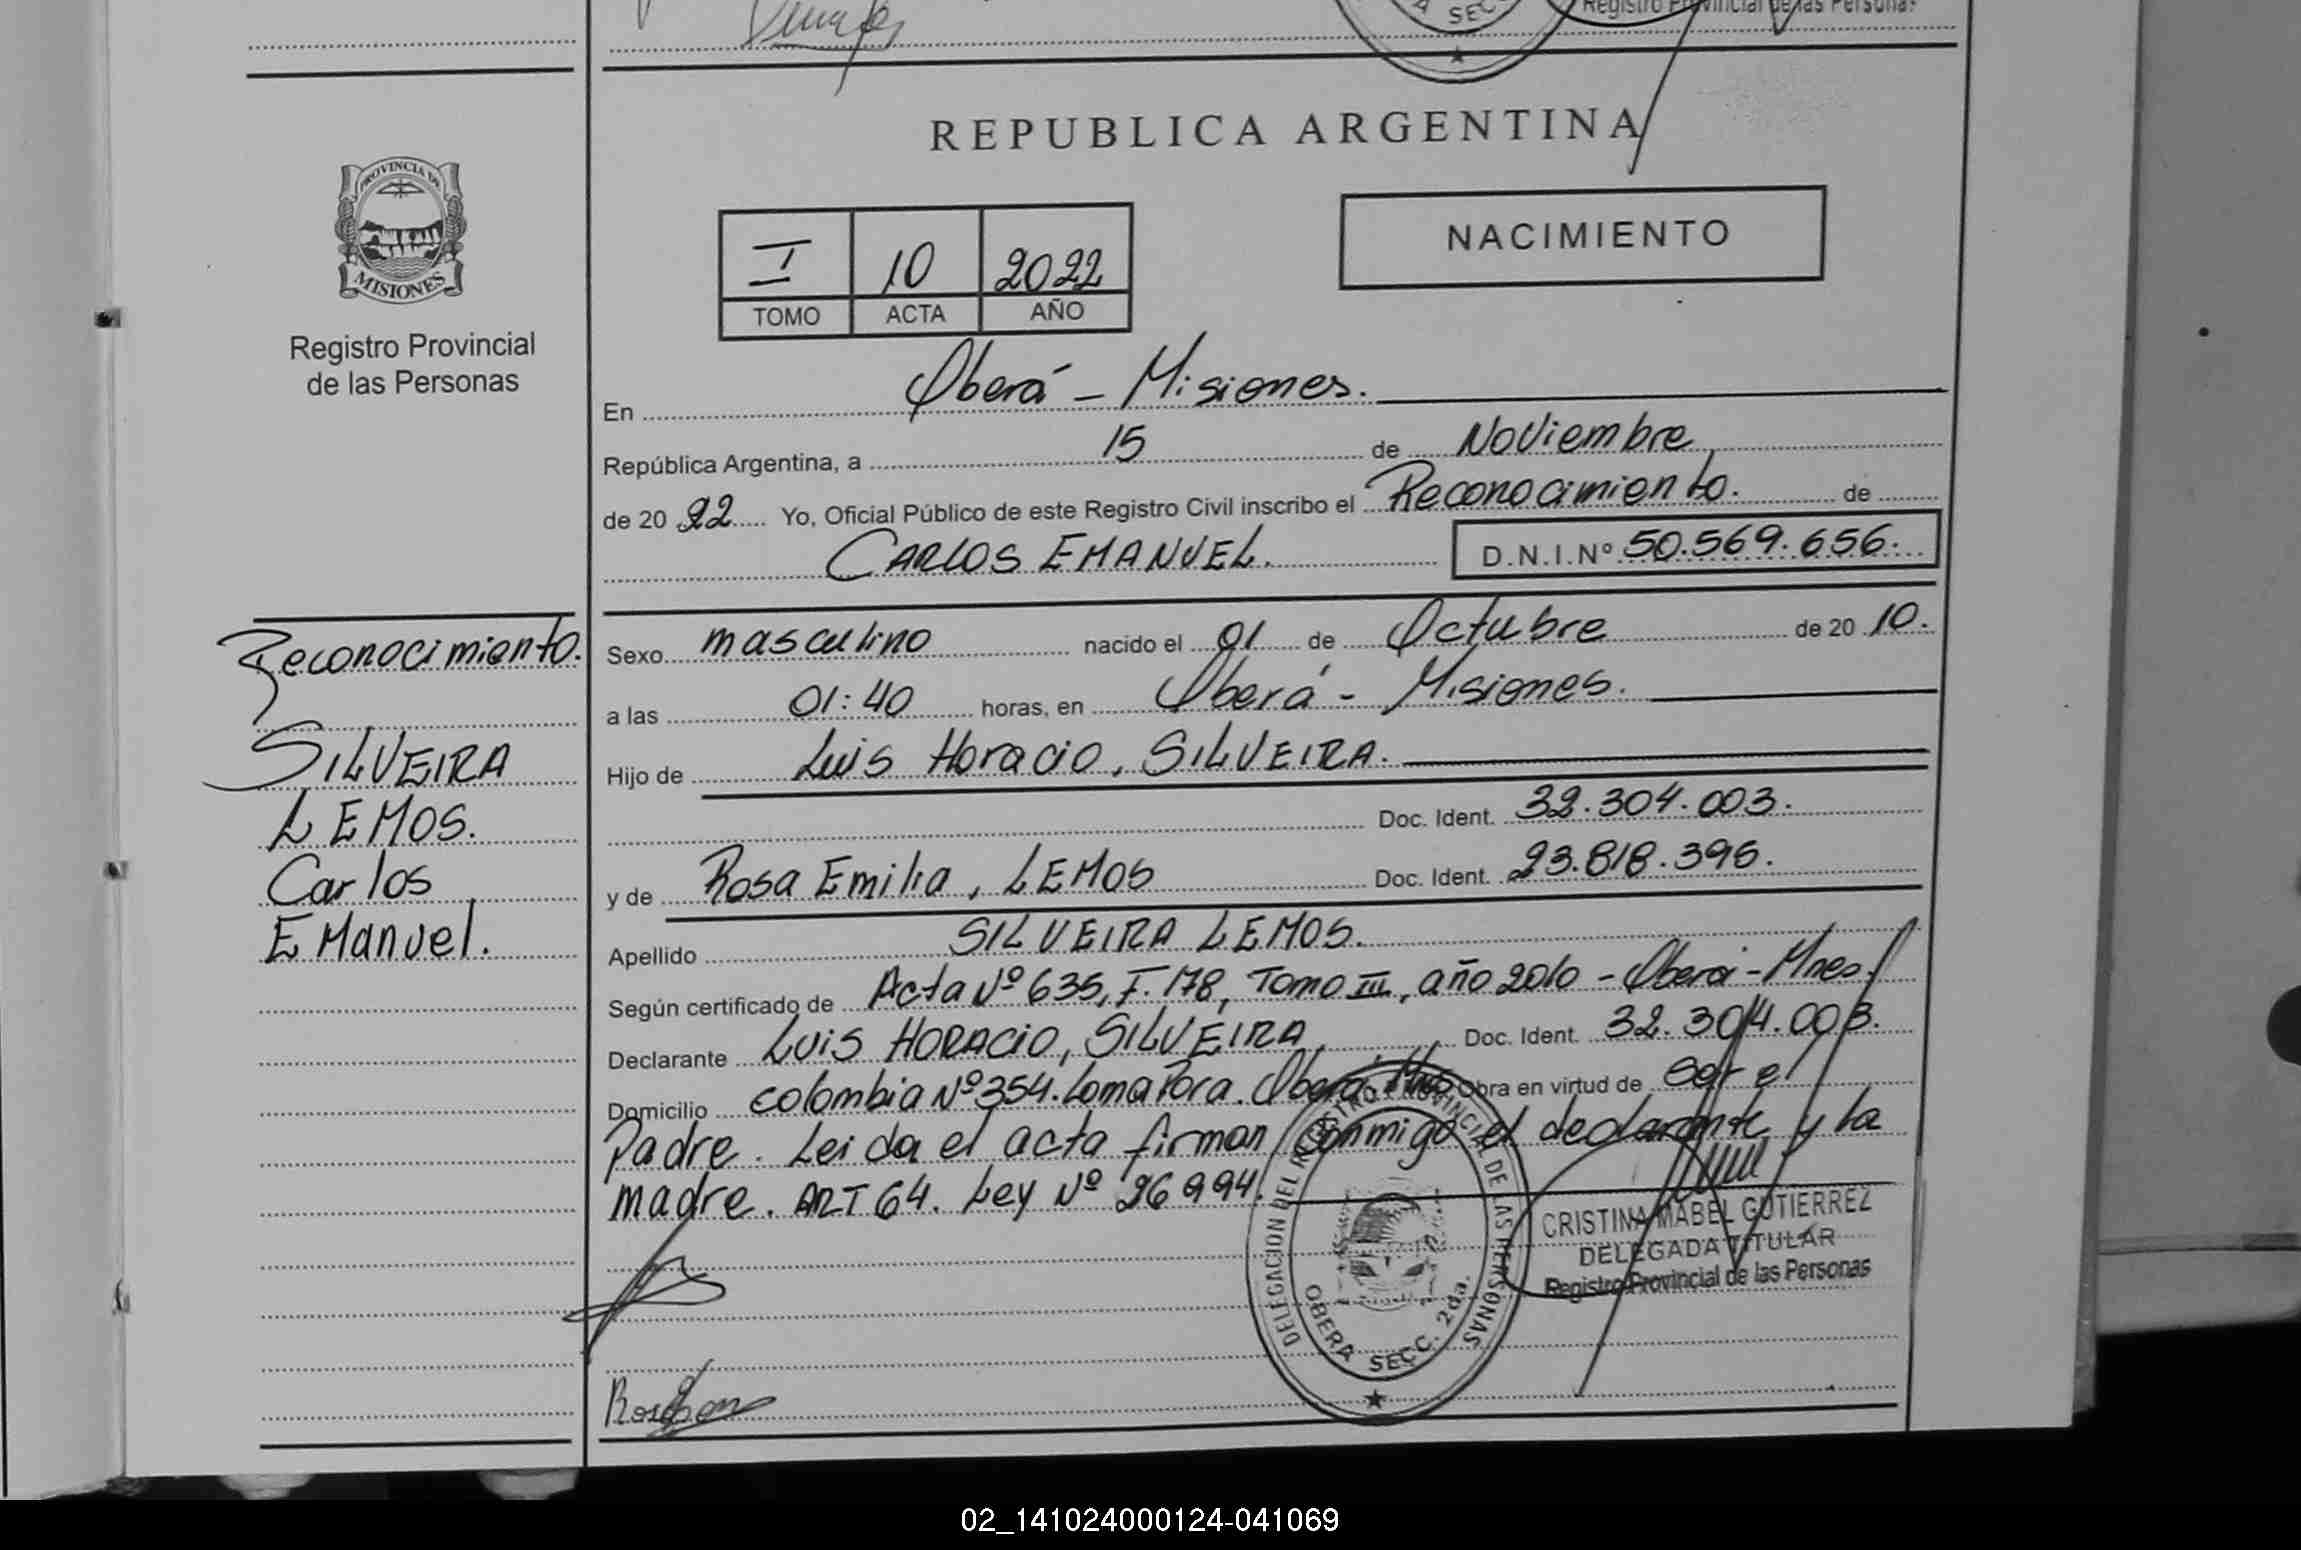 Registro Provincial de las Personas
SECC
REPUBLICA ARGENTINA
PROVINCIA DE
MISIONES
Registro Provincial
de las Personas
I 10 2022
TOMO ACTA AÑO
NACIMIENTO
En Oberá - Misiones.
República Argentina, a 15 de Noviembre
de 2022 Yo, Oficial Público de este Registro Civil inscribo el Reconocimiento. de
CARLOS EMANUEL. D.N.I.Nº 50.569.656.
Reconocimiento.
SILVEIRA
LEMOS.
Carlos
EManuel.
Sexo masculino nacido el 01 de Octubre de 2010.
a las 01:40 horas, en Oberá - Misiones.
Hijo de Luis Horacio, SILVEIRA.
Doc. Ident. 32.304.003.
y de Rosa Emilia, LEMOS Doc. Ident. 23.818.396.
Apellido SILVEIRA LEMOS.
Según certificado de Acta Nº 635, F. 178, Tomo III, año 2010 - Oberá - Mnes.
Declarante Luis HORACIO, SILVEIRA, Doc. Ident. 32.304.003.
Domicilio colombia Nº 354. Loma Pora. Oberá. Mnes Obra en virtud de ser el
Padre. Leida el acta firman conmigo el declarante y la
madre. ART 64. Ley Nº 26994.
DELEGACION DEL REGISTRO PROVINCIAL DE LAS PERSONAS
OBERA SECC. 2da.
CRISTINA MABEL GUTIERREZ
DELEGADA TITULAR
Registro Provincial de las Personas
02_141024000124-041069